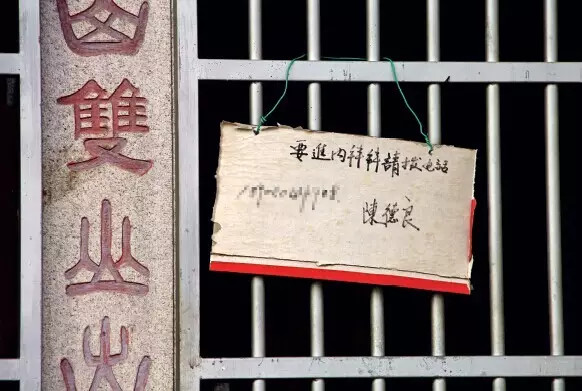 雙山
要進內拜拜請撥電話
陳德良